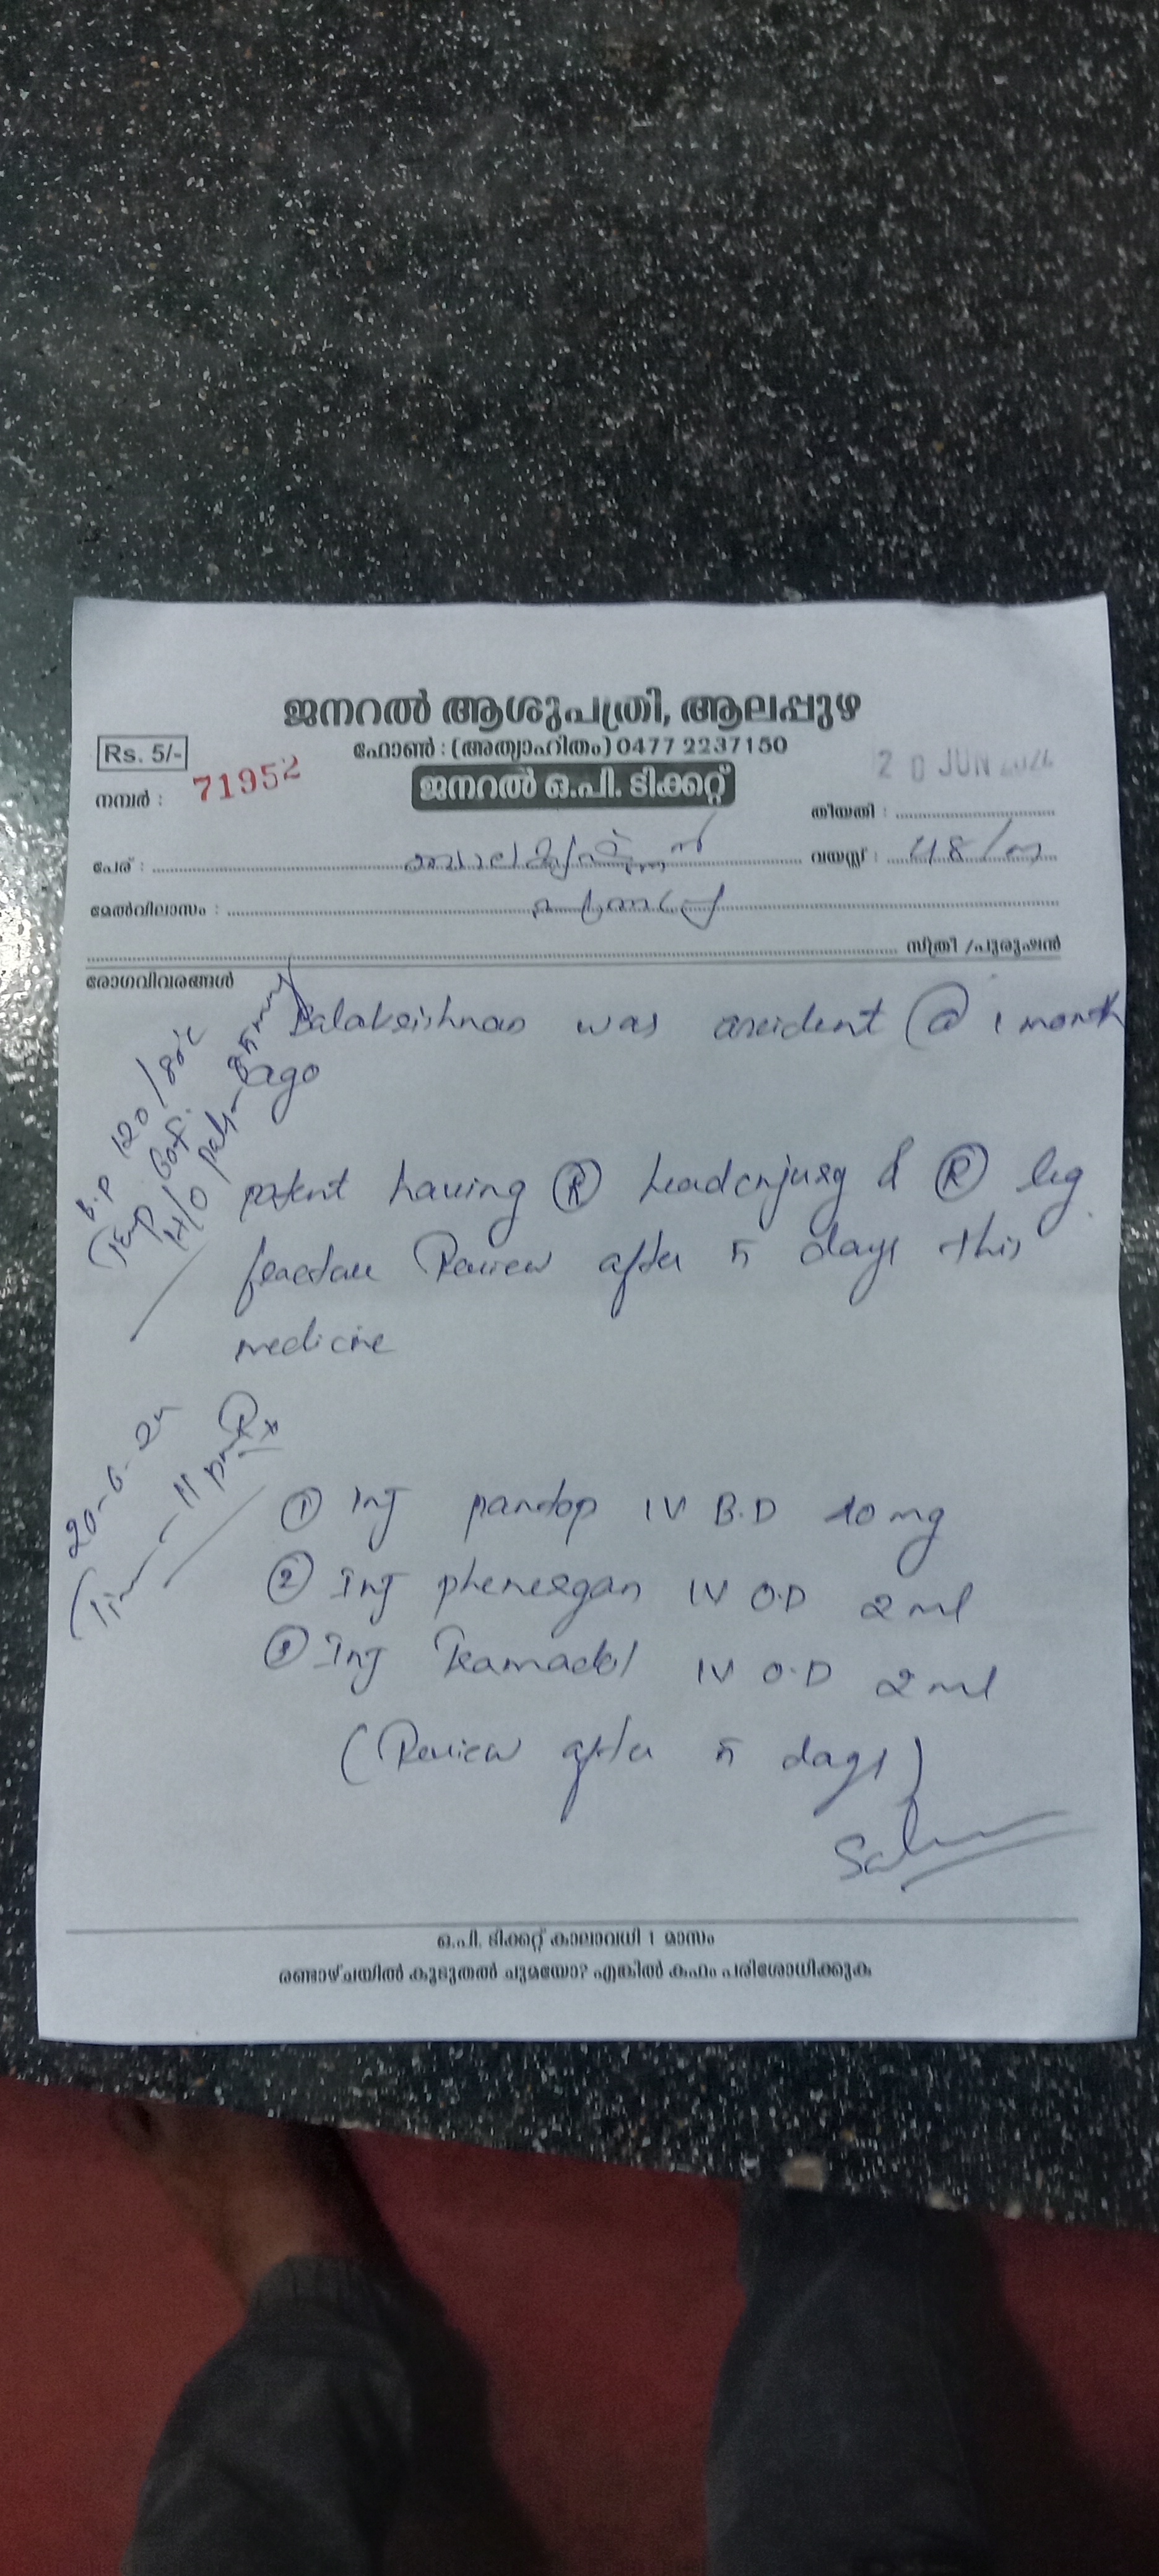 ജനറൽ ആശുപത്രി, ആലപ്പുഴ
Rs. 5/-
ഫോൺ : (അത്യാഹിതം) 0477 2237150
2 0 JUN 2024
നമ്പർ : 71952
ജനറൽ ഒ.പി. ടിക്കറ്റ്
തീയതി :
പേര് : ബാലകൃഷ്ണൻ വയസ്സ് : 48/m
മേൽവിലാസം :
സ്ത്രീ / പുരുഷൻ
രോഗവിവരങ്ങൾ
Balakrishnan was accident @ 1 month
ago
B.P 120/80
Temp
H/O
patent having Ⓡ headenjury & Ⓡ leg
fracture Review after 5 days this
medicine
20-6-24
Time - 11 pm
Rx
① Inj pantop IV B.D 40 mg
② Inj phenergan IV O.D 2 ml
③ Inj Tramadol IV O.D 2 ml
(Review after 5 days)
ഒ.പി. ടിക്കറ്റ് കാലാവധി 1 മാസം
രണ്ടാഴ്ചയിൽ കൂടുതൽ ചുമയോ? എങ്കിൽ കഫം പരിശോധിക്കുക